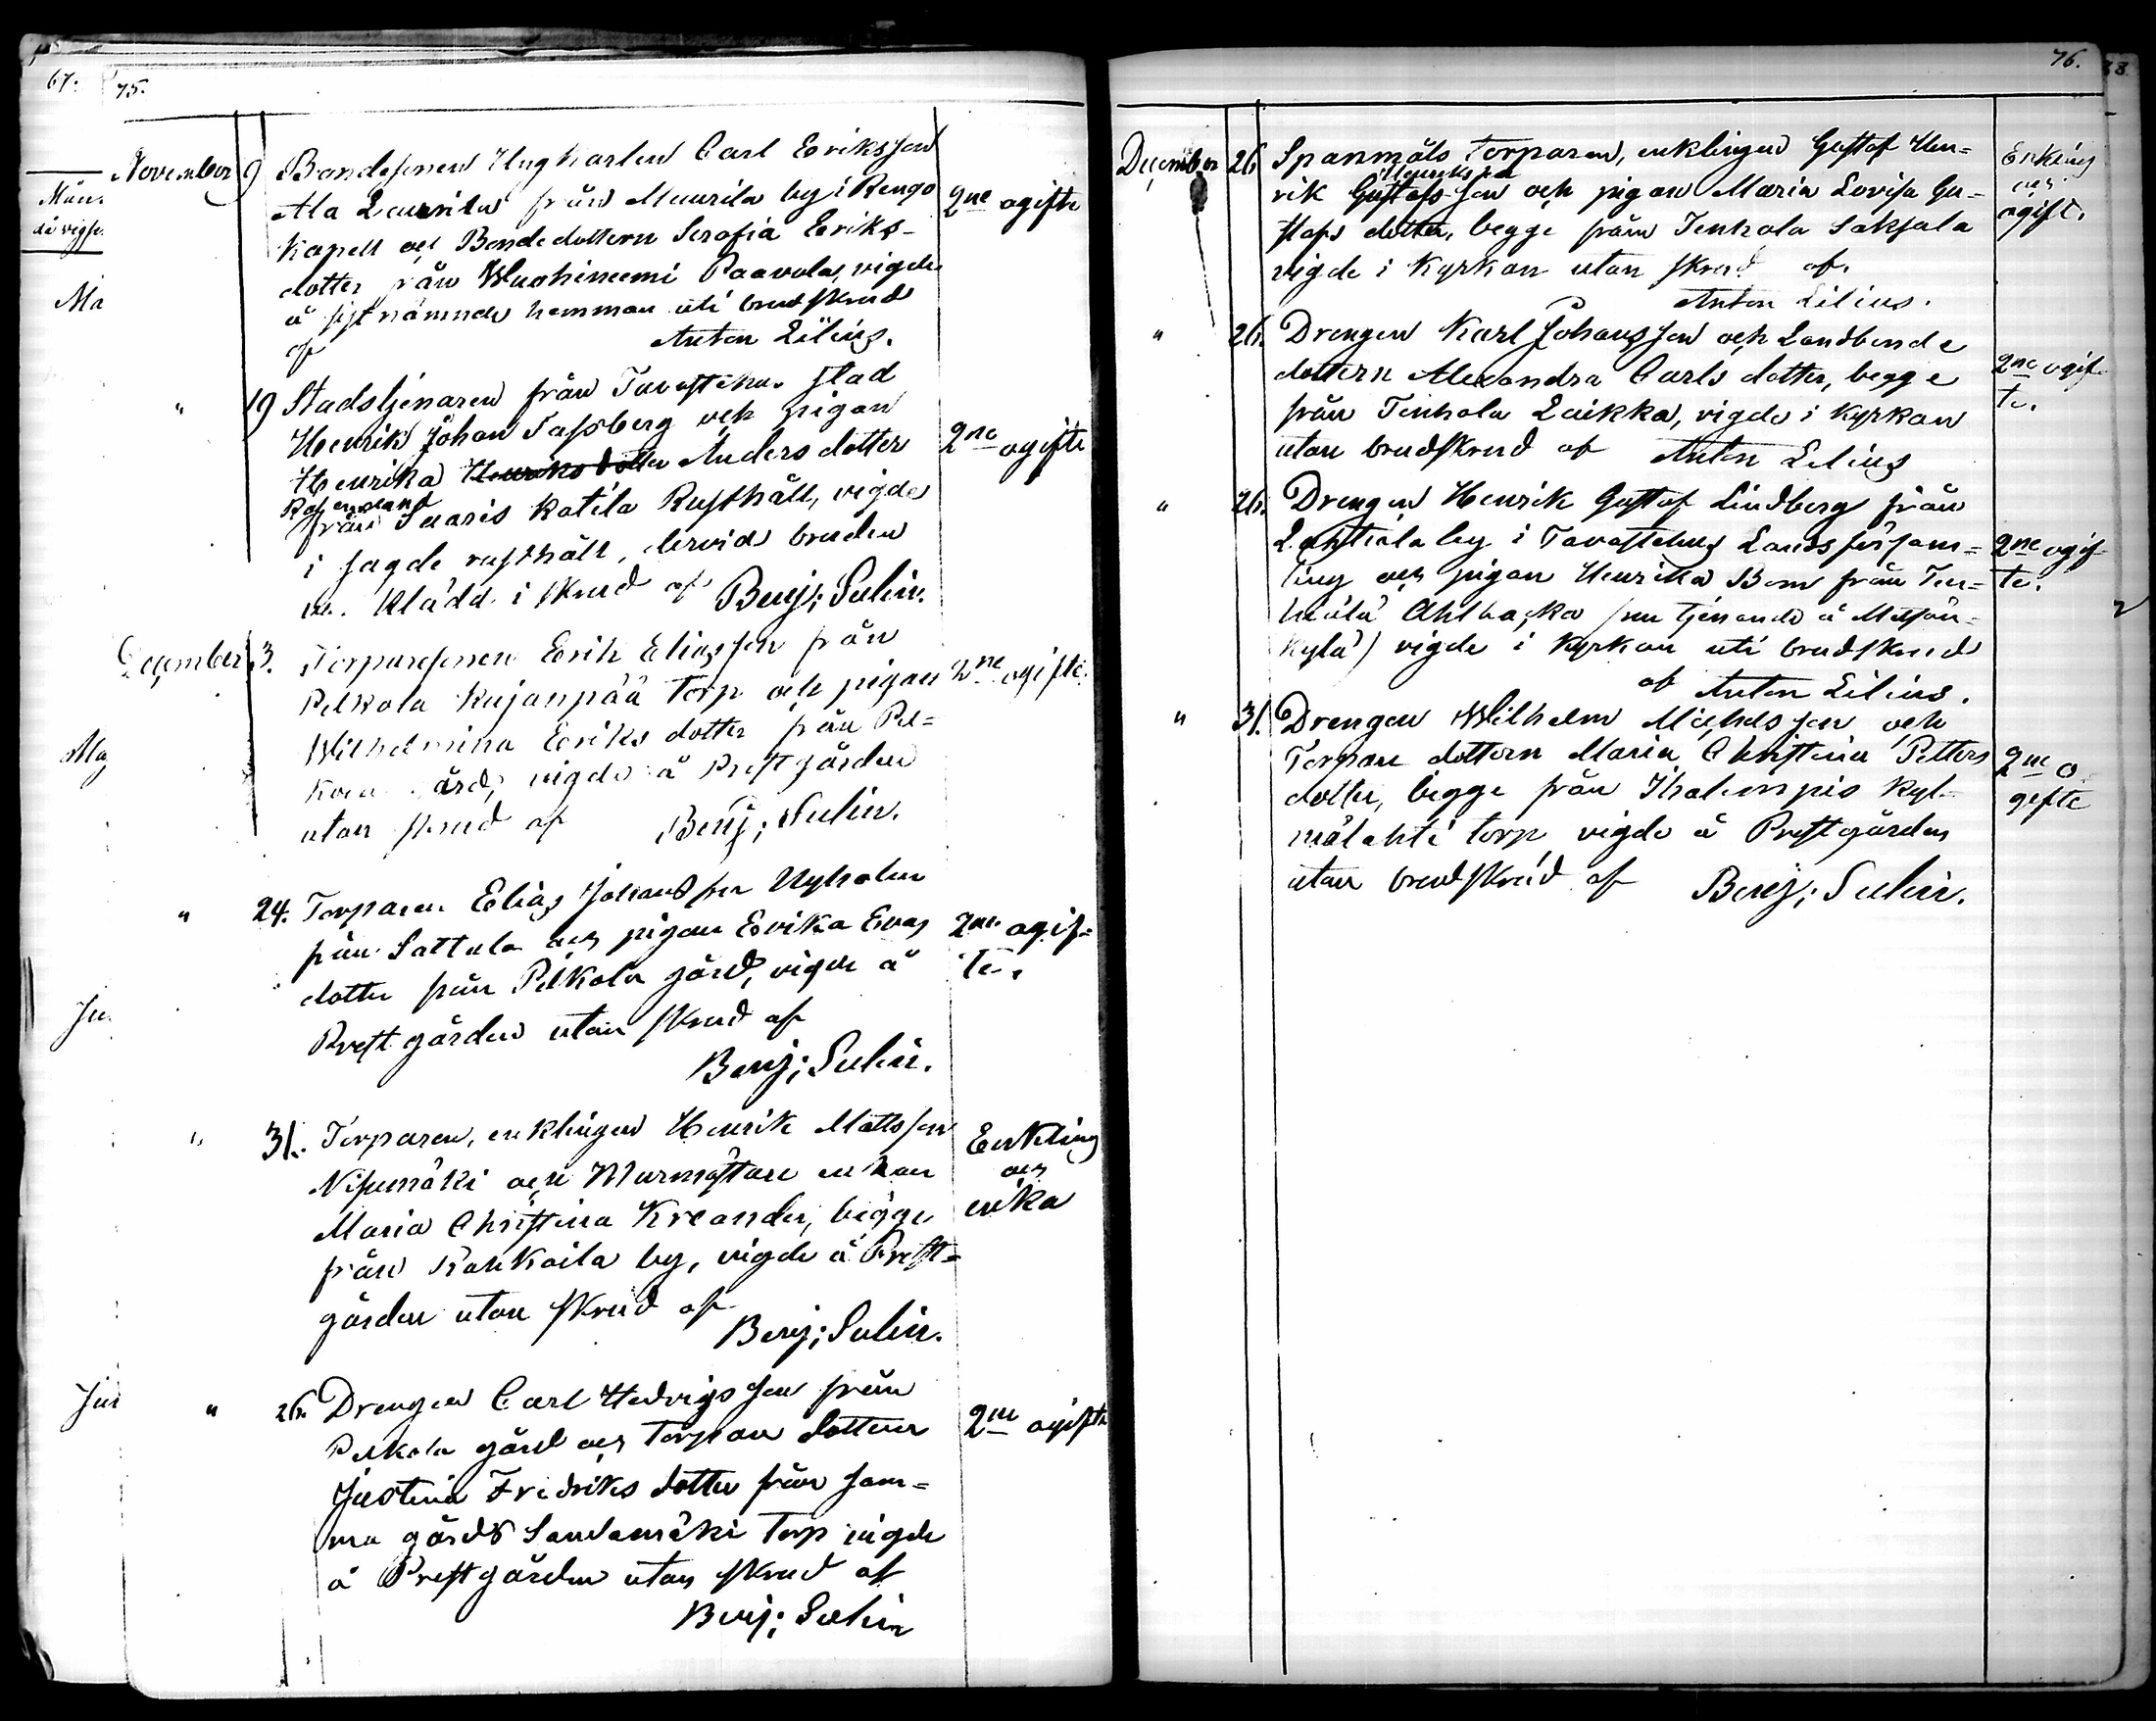 67.
75.
Ma
November 9 Bondesonen Ungkarlen Carl Eriksson
Ala Laurila från Maurila by i Rengo
Kapell och Bondedottern Serafia Eriks-
dotter från Wuohiniemi Paavola, vigde
å sistnämnde hemman uti brudskrud
af Anton Lilius.
2ne ogifte
" 19 Stadstjenaren från Tavastehus stad
Henrik Johan Tassberg och pigan
Henrika Henriksdotter Anders dotter
från Saaris Katila Rusthåll, vigde
i sagde rusthåll, dervid bruden
klädd i skrud af Benj: Sulin.
2ne ogifte
December 3. Torparesonen Erik Eliasson från
Pelkola Kujanpää Torp och pigan
Wilhelmina Eriks dotter från Pel-
kola gård, vigde å Prestgården
utan skrud af Benj; Sulin.
2ne ogifte.
" 24. Torparen Elias Johansson Nyholm
från Sattula och pigan Erika Evas
dotter från Pelkola gård, vigde å
Prestgården utan skrud af
Benj; Sulin.
2ne ogif=
te.
" 31. Torparen, enklingen Henrik Mattsson
Nisumäki och Murmästare enkan
Maria Christina Kreander, bägge
från Kankaila by, vigde å Prest=
gården utan skrud af
Benj; Sulin.
Enkling
och
enka
" 26. Drengen Carl Hedvigsson från
Pelkola gård och Torpare dottren
Justina Fredriks dotter från sam=
ma gårds Sandamäki Torp vigde
å Prestgården utan skrud af
Benj; Sulin
2ne ogifte
76.
December 26. Spanmåls Torparen, enklingen Gustaf Hen=
Henriksson
rik Gustafsson och pigan Maria Lovisa Gu-
stafs dotter, begge från Tenhola Saksala
vigde i Kyrkan utan skrud af
Anton Lilius.
Enkling
och
ogift.
" 26. Drengen Karl Johansson och Landbonde
dottern Alexandra Carls dotter, begge
från Tenhola Laikka, vigde i Kyrkan
utan brudskrud af Anton Lilius
2ne ogif-
te.
" 26. Drengen Henrik Gustaf Lindberg från
Luhtiala by i Tavastehus Landsförsam=
ling och pigan Henrika Bom från Ten-
hiälä Ahlbacka (nu tjenande å
kylä) vigde i Kyrkan uti brudskrud
af Anton Lilius.
2ne ogif-
te.
" 31. Drengen Wilhelm Michelsson och
Torpare dottern Maria Christina Petters
dotter, begge från Ihalempis Kyl-
mälahti torp vigde å Prestgården
utan brudskrud af Benj; Sulin.
2ne o-
gifte